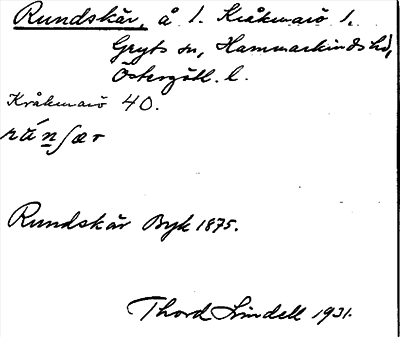 Rundskär, å l. Kråkmarö l,
Gryts sn, Hammarkinds hd,
Östergötl. l.
Kråkmarö 40.
Rundskär Byk 1875.
Thord Lindell 1931.